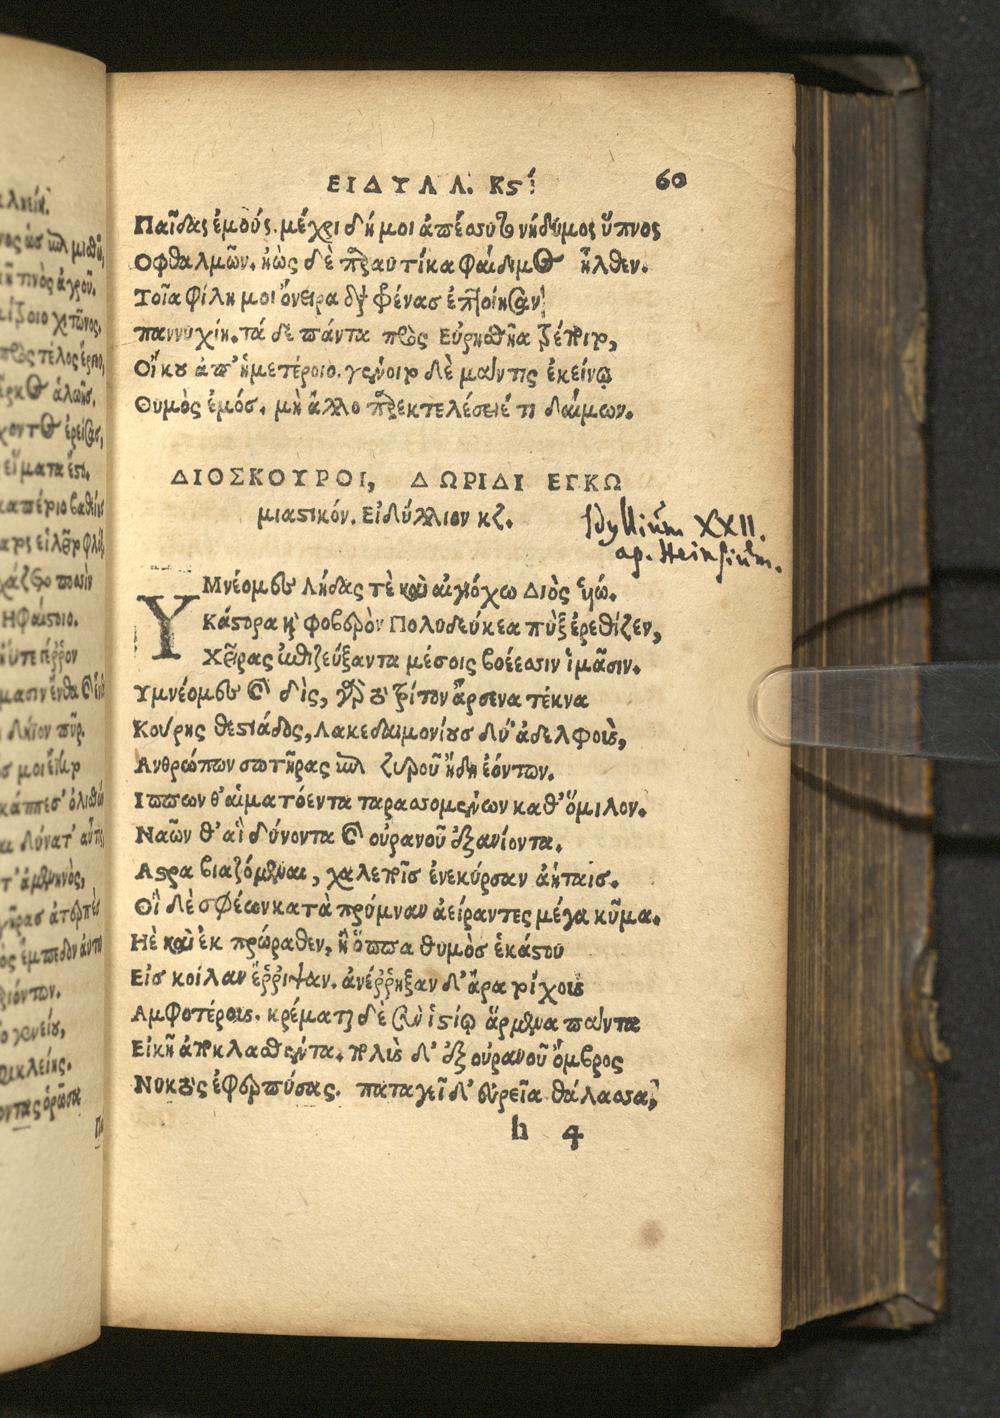 ΕΙΔΥΛΛ. κϛ΄. 60
Παῖδας ἐμούς. μέχρι δή μοι ἀπέσσυτο νήδυμος ὕπνος
Οφθαλμῶν. ἠὼς δὲ παραυτίκα φαίδιμος ἦλθεν.
Τοῖα φίλη μοι ὄνειρα διὰ φρένας ἐπτοίησαν
παννυχίη. τά δε πάντα πρὸς Εὐρυσθῆα τρέποιτο,
Οἴκου ἀπ' ἡμετέροιο. γένοιτο δὲ μάντις ἐκείνῳ
Θυμὸς ἐμός. μὴ ἄλλο παρεκτελέσειέ τι δαίμων.
ΔΙΟΣΚΟΥΡΟΙ, ΔΩΡΙΔΙ ΕΓΚΩ
μιαστικόν. Εἰδύλλιον κζ.
Idyllium XXII.
ap. Heinsium.
ΥΜνέομες Λήδας τὲ καὶ αἰγιόχω Διὸς υἱώ.
Κάστορα καὶ φοβερὸν Πολυδεύκεα πὺξ ἐρεθίζεν,
Χεῖρας ἐπιζεύξαντα μέσοις βοέεσσιν ἱμᾶσιν.
Υμνέομες καὶ δὶς, καὶ τὸ τρίτον ἄρσενα τέκνα
Κούρης θεστιάδος, Λακεδαιμονίους δύ' ἀδελφοὺς,
Ανθρώπων σωτῆρας ἐπὶ ξυροῦ ἤδη ἐόντων.
Ιππων θ' αἱματόεντα ταρασσομένων καθ' ὅμιλον.
Ναῶν θ' αἳ δύνοντα καὶ οὐρανοῦ ἐξανίοντα.
Αστρα βιαζόμεναι, χαλεποῖς ἐνεκύρσαν ἀήταις.
Οἳ δὲ σφέων κατὰ πρύμναν ἀείραντες μέγα κῦμα.
Ηὲ καὶ ἐκ πρώραθεν, ἢ ὅππα θυμὸς ἑκάστου
Εἰς κοίλαν ἔῤῥιψαν. ἀνέῤῥηξαν δ' ἄρα τοίχους
Αμφοτέρους. κρέμαται δὲ σὺν ἱστίῳ ἄρμενα πάντα
Εἰκῆ ἀποκλασθέντα. πολὺς δ' ἐξ οὐρανοῦ ὄμβρος
Νυκτὸς ἐφερπύσας. παταγεῖ δ' εὐρεῖα θάλασσα,
h 4